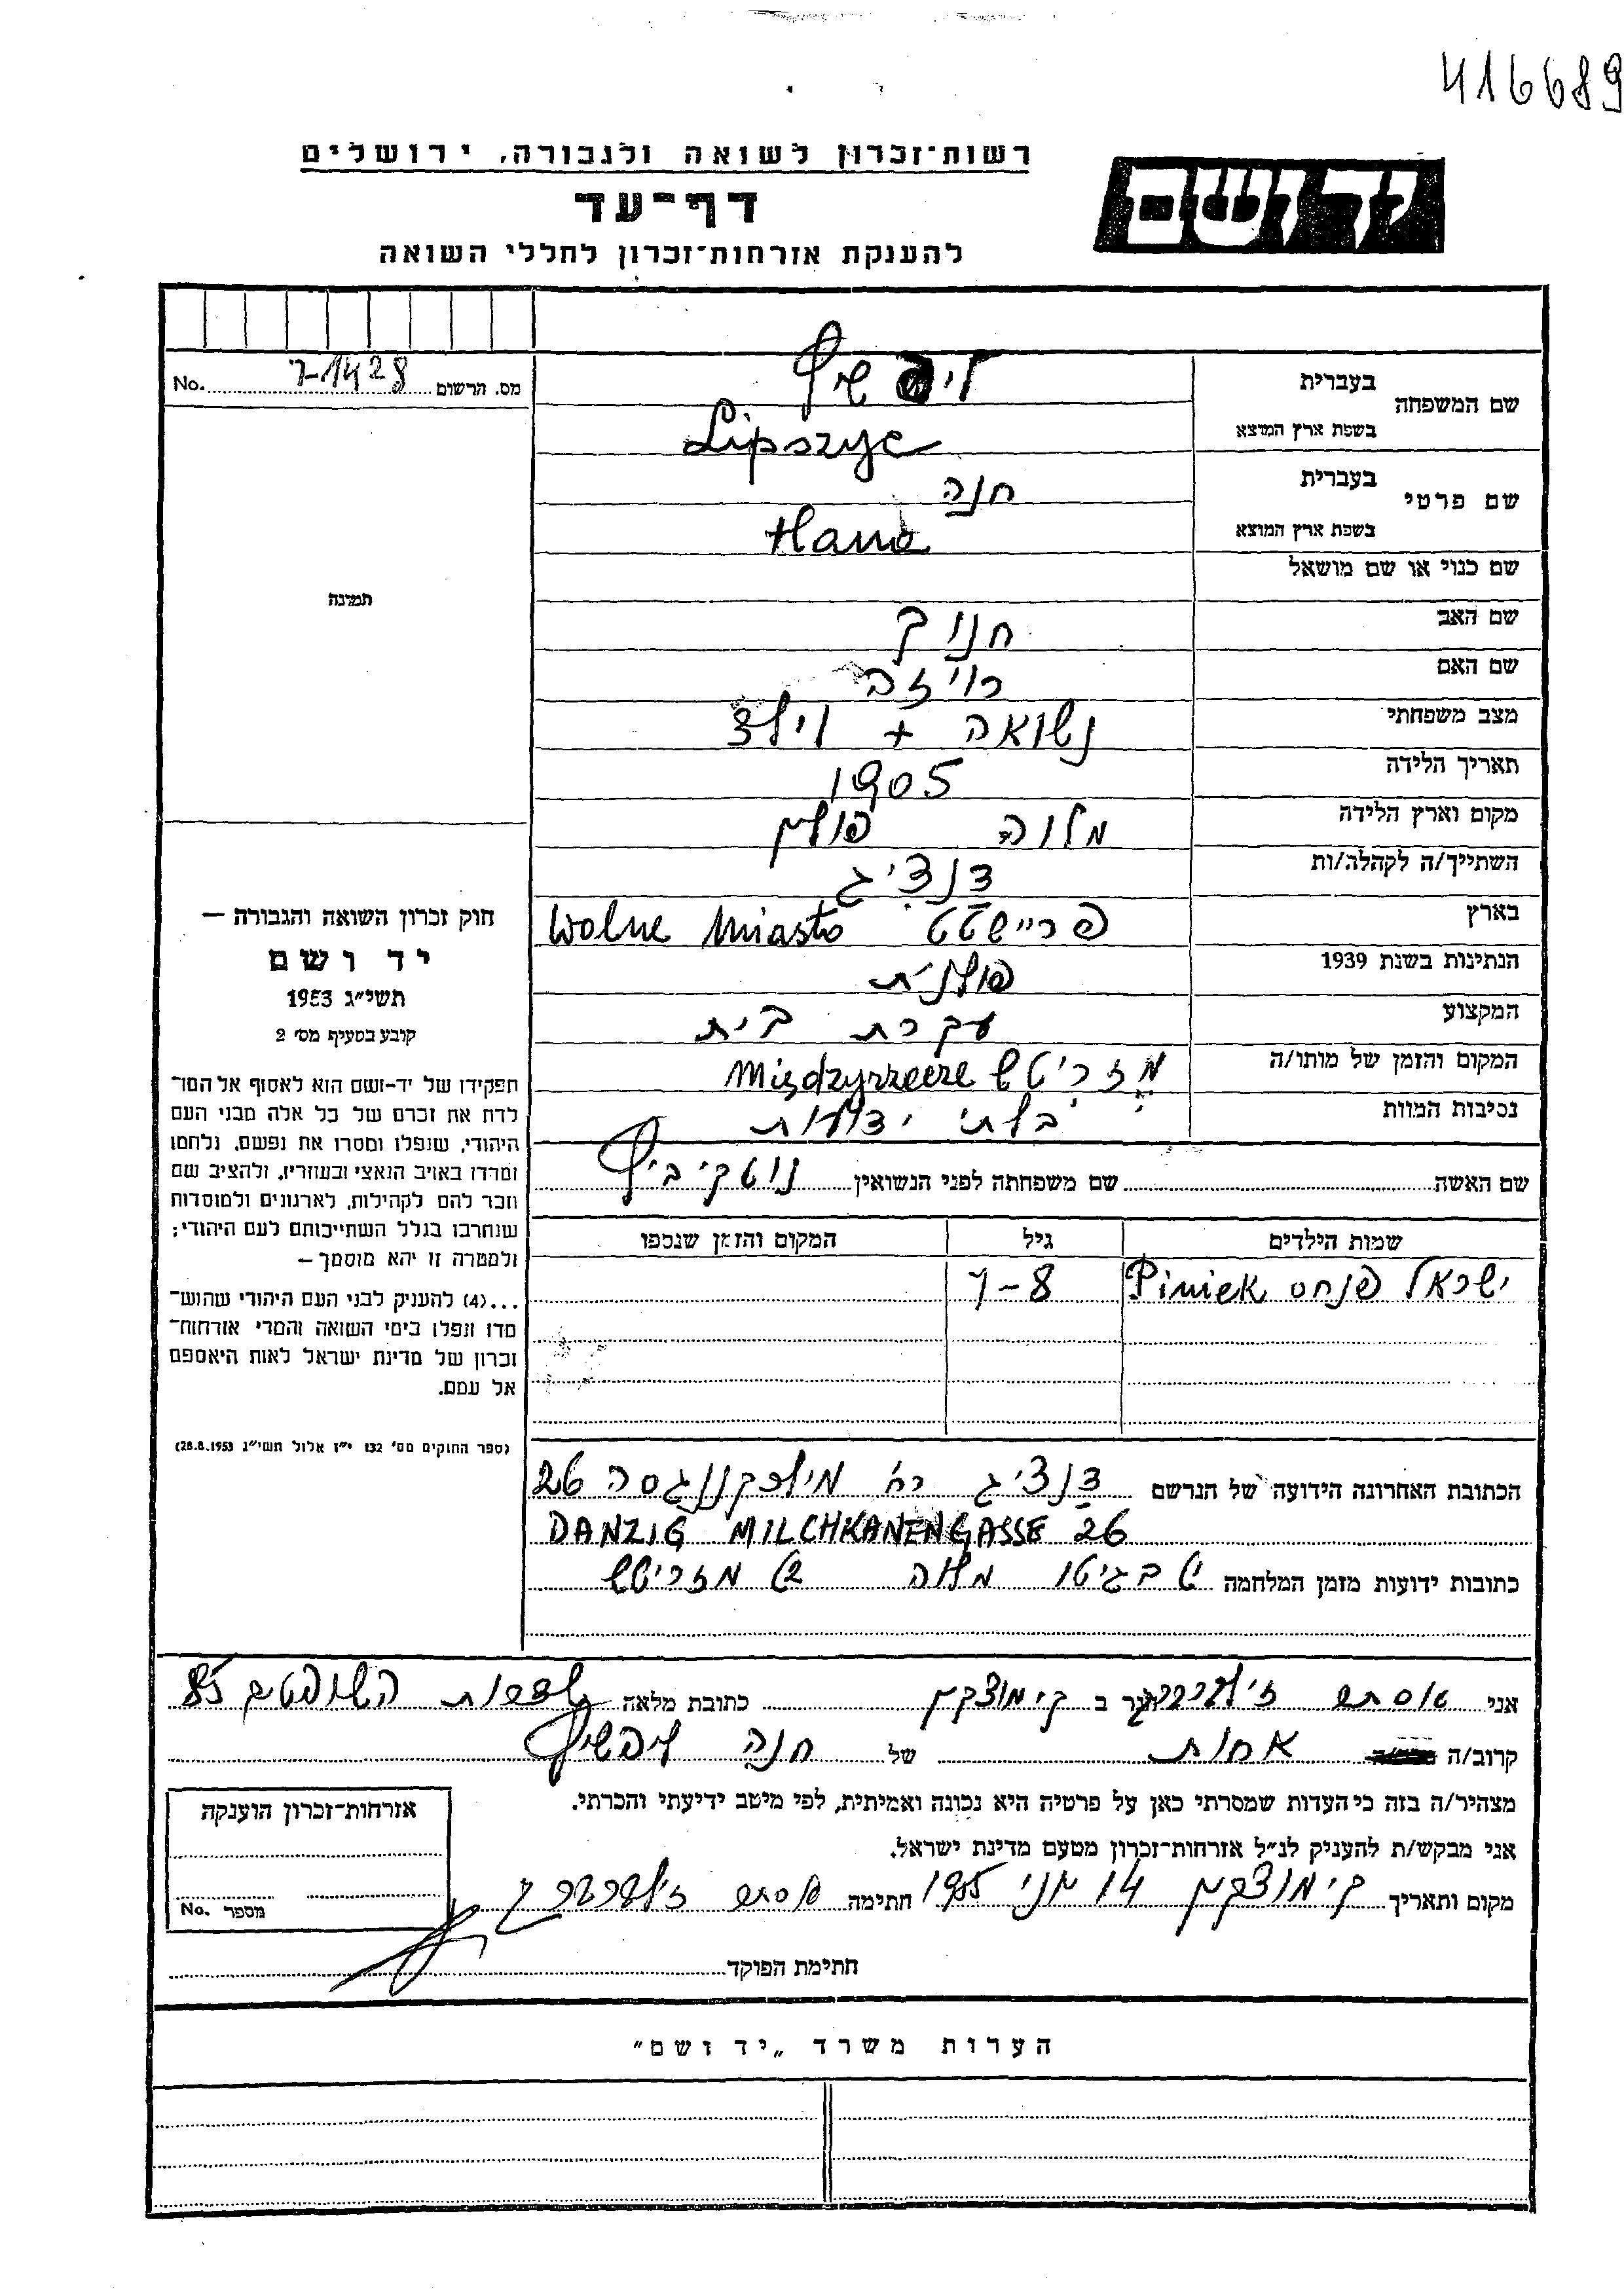 416689
רשות־זכרון לשואה ולגבורה, ירושלים
יד ושם
דף־עד
להענקת אזרחות־זכרון לחללי השואה
מס. הרשום 7-1428 No.
שם המשפחה בעברית ליפשיץ
בשפת ארץ המוצא Lipszyc
שם פרטי בעברית חנה
בשפת ארץ המוצא Hana
שם כנוי או שם מושאל
שם האב חנוך
שם האם רויזה
מצב משפחתי נשואה + וילד
תאריך הלידה 1905
מקום וארץ הלידה מלוה פולין
השתייך/ה לקהלה/ות דנציג
בארץ פריישטט Wolne Miasto
הנתינות בשנת 1939 פולנית
המקצוע עקרת בית
המקום והזמן של מותו/ה מזריטש
נסיבות המוות בלתי ידועות
שם האשה שם משפחתה לפני הנשואין
שמות הילדים גיל המקום והזמן שנספו
ישראל פנחס Piniek 7-8
הכתובת האחרונה הידועה של הנרשם דנציג רח' מילכקננגסה 26
DANZIG MILCHKANENGASSE 26
כתובות ידועות מזמן המלחמה בגיטו מלוה מזריטש
תמונה
חוק זכרון השואה והגבורה —
יד ושם
תשי״ג 1953
קובע בסעיף מס׳ 2
תפקידו של יד-ושם הוא לאסוף אל המו־
לדת את זכרם של כל אלה מבני העם
היהודי, שנפלו ומסרו את נפשם, נלחמו
ומרדו באויב הנאצי ובעוזריו, ולהציב שם
וזכר להם לקהילות, לארגונים ולמוסדות
שנחרבו בגלל השתייכותם לעם היהודי;
ולמטרה זו יהא מוסמך —
...(4) להעניק לבני העם היהודי שהוש־
מדו ונפלו בימי השואה והמרי אזרחות־
זכרון של מדינת ישראל לאות היאספם
אל עמם.
(ספר החוקים מס׳ 132 י״ז אלול תשי״ג 28.8.1953)
אני אסתר זילברברג גר ב ק. מוצקין כתובת מלאה שדרות השופטים 85
קרוב/ה אחות של חנה ליפשיץ
מצהיר/ה בזה כי העדות שמסרתי כאן על פרטיה היא נכונה ואמיתית, לפי מיטב ידיעתי והכרתי.
אני מבקש/ת להעניק לנ״ל אזרחות־זכרון מטעם מדינת ישראל.
מקום ותאריך ק. מוצקין 14 יוני 1955 חתימה אסתר זילברברג
חתימת הפוקד
אזרחות־זכרון הוענקה
מספר No.
הערות משרד „יד ושם״